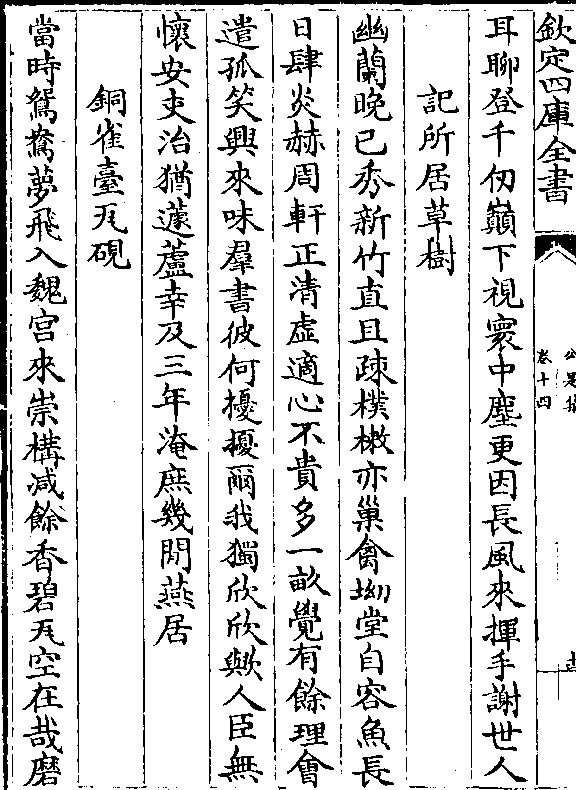 欽定四庫全書
公是集
卷十四
耳聊登千仞巔下視寰中塵更因長風來揮手謝世人
記所居草樹
幽蘭晚已秀新竹直且疎樸樕亦巢禽坳堂自容魚長
日肆炎赫周軒正清虚適心不貴多一畝覺有餘理會
遣孤笑興來味羣書彼何擾擾爾我獨欣欣歟人臣無
懷安吏治猶蘧蘆幸及三年淹庶幾閒燕居
銅雀臺瓦硯
當時鴛鴦夢飛入魏宫來崇構减餘香碧瓦空在哉磨